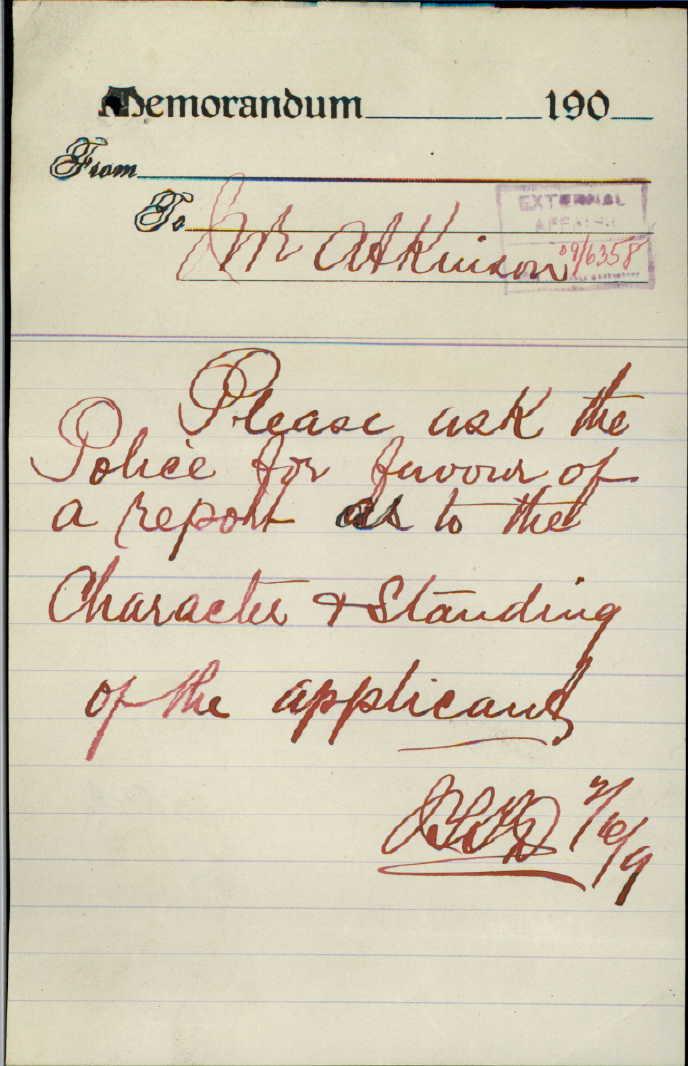 Memorandum 190
From
To Mr Atkinson
EXTERNAL
AFFAIRS
09/6358
Please ask the
Police for favour of
a report as to the
Character & Standing
of the applicant